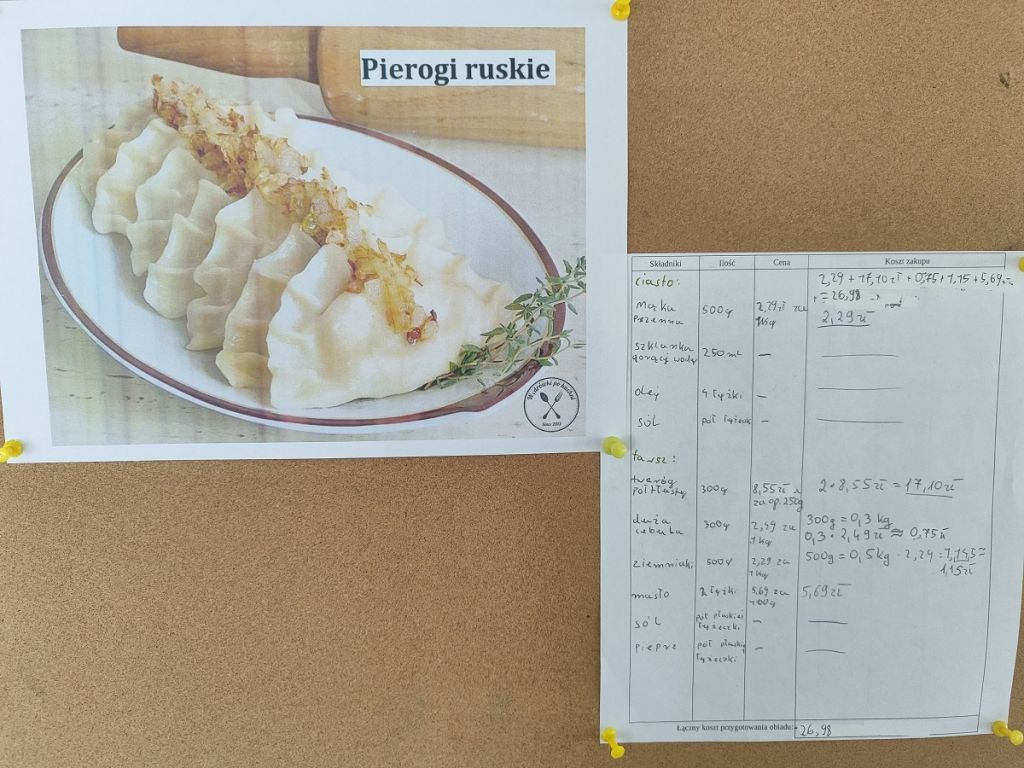 Pierogi ruskie
W zdrówki po kuchni
Since 2015
Składniki Ilość Cena Koszt zakupu
ciasto: 2,29 + 17,10 zł + 0,75 + 1,15 + 5,69 =
= 26,98
Mąka 500g 2,29 zł za 2,29 zł
pszenna 1kg
szklanka 250 ml —
gorącej wody
olej 4 łyżki —
sól pół łyżeczki —
farsz:
twaróg 300g 8,55 zł 2 · 8,55 zł = 17,10 zł
półtłusty za op. 250g
duża 300g 2,49 za 300g = 0,3 kg
cebula 1 kg 0,3 · 2,49 zł ≈ 0,75 zł
ziemniaki 500g 2,29 za 500g = 0,5 kg · 2,29 = 1,145 ≈
1 kg 1,15 zł
masło 2 łyżki 5,69 za 5,69 zł
100g
sól pół płaskiej —
łyżeczki
pieprz pół płaskiej —
łyżeczki
Łączny koszt przygotowania obiadu: 26,98